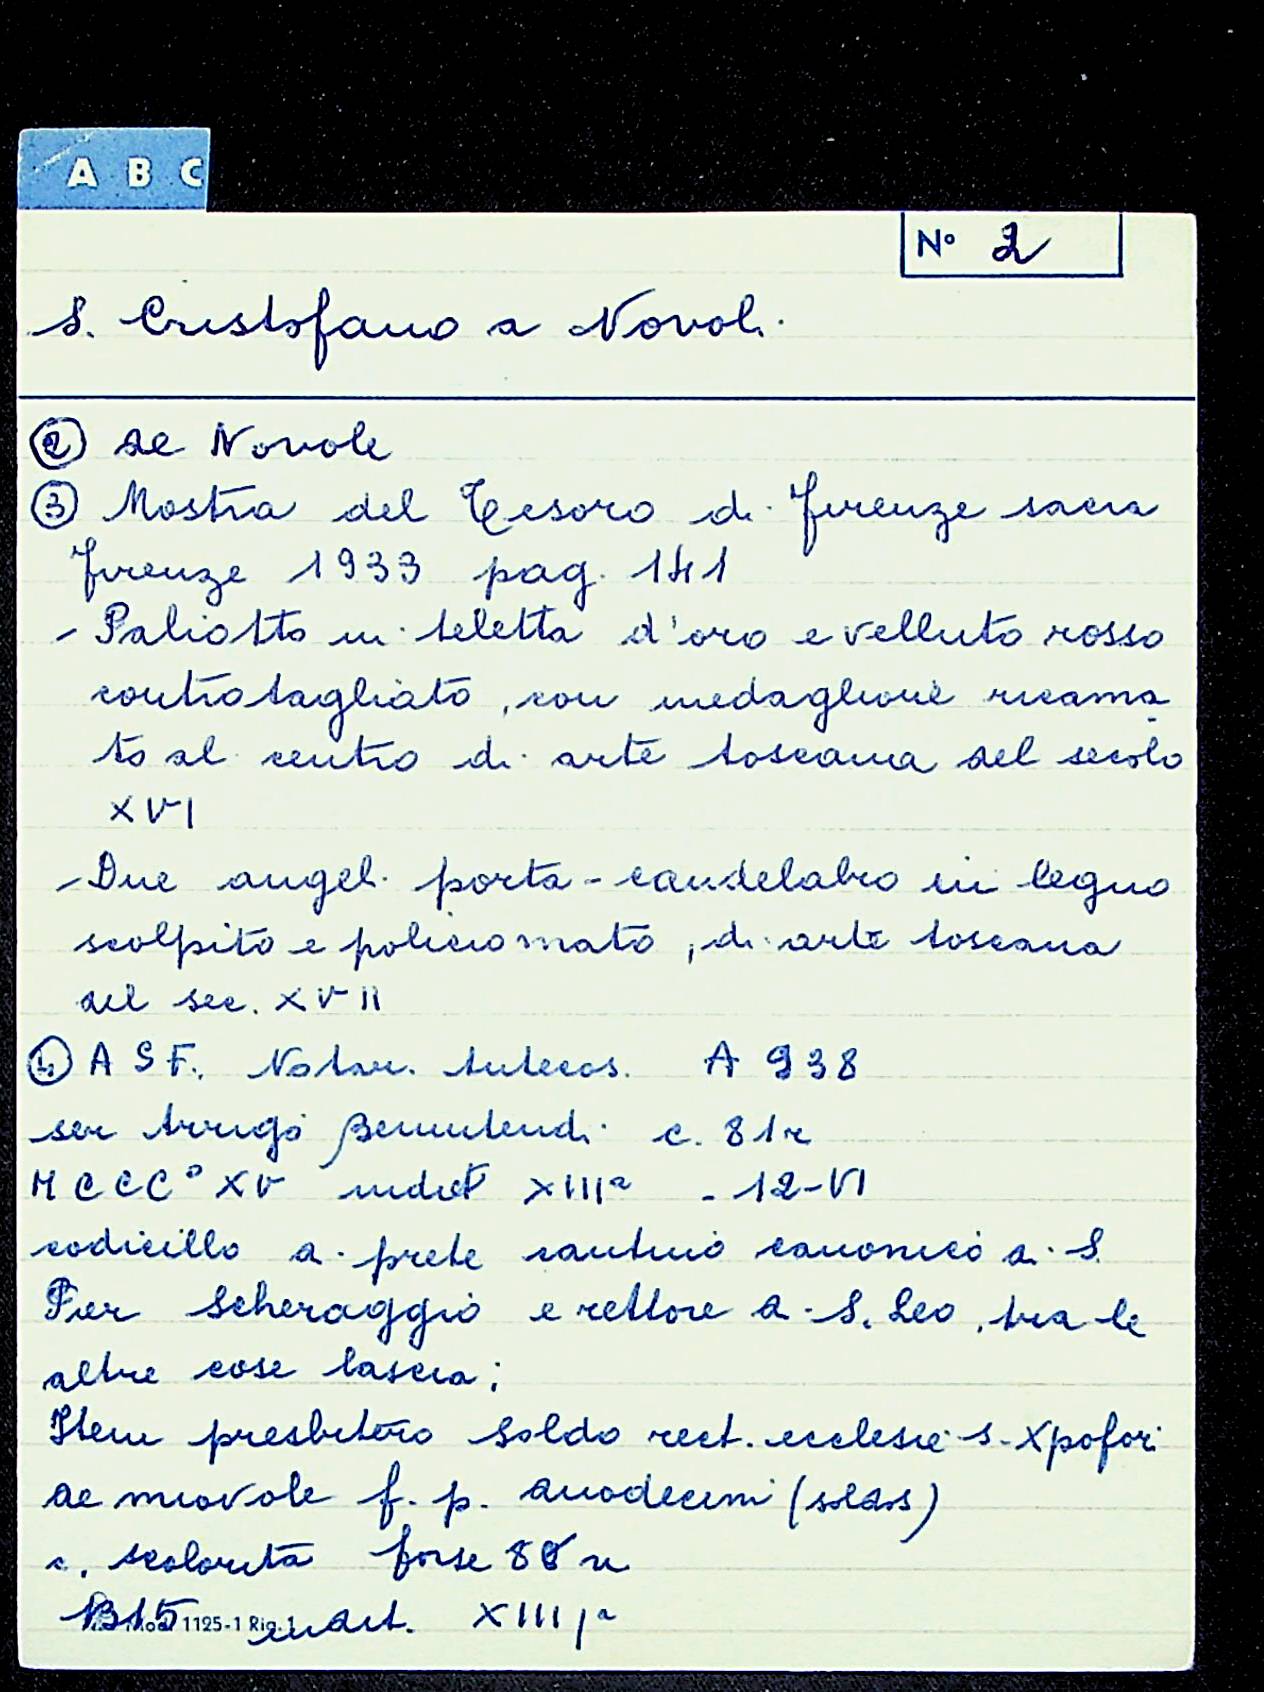 A B C
N° 2
S. Cristofano a Novoli
② de Novole
③ Mostra del Tesoro di Firenze sacra
Firenze 1933 pag. 141
- Paliotto in teletta d'oro e velluto rosso
controtagliato, con medaglione ricama
to al centro di arte toscana del secolo
XVI
- Due angeli porta-candelabro in legno
scolpito e policromato, di arte toscana
del sec. XVII
④ A S F. Notar. antecos. A 938
ser Arrigo Benintendi c. 81r
MCCC° XV indict XIIIa - 12-VI
codicillo di prete cantino canonico di S.
Pier Scheraggio e rettore di S. Leo, tra le
altre cose lascia;
Item presbitero Soldo rect. ecclesie S. Xpofori
de niovole f. p. duodecim (soldos)
c. scolorita forse 88 r
1315 indict. XIII
Mod. 1125-1 Rig. 1